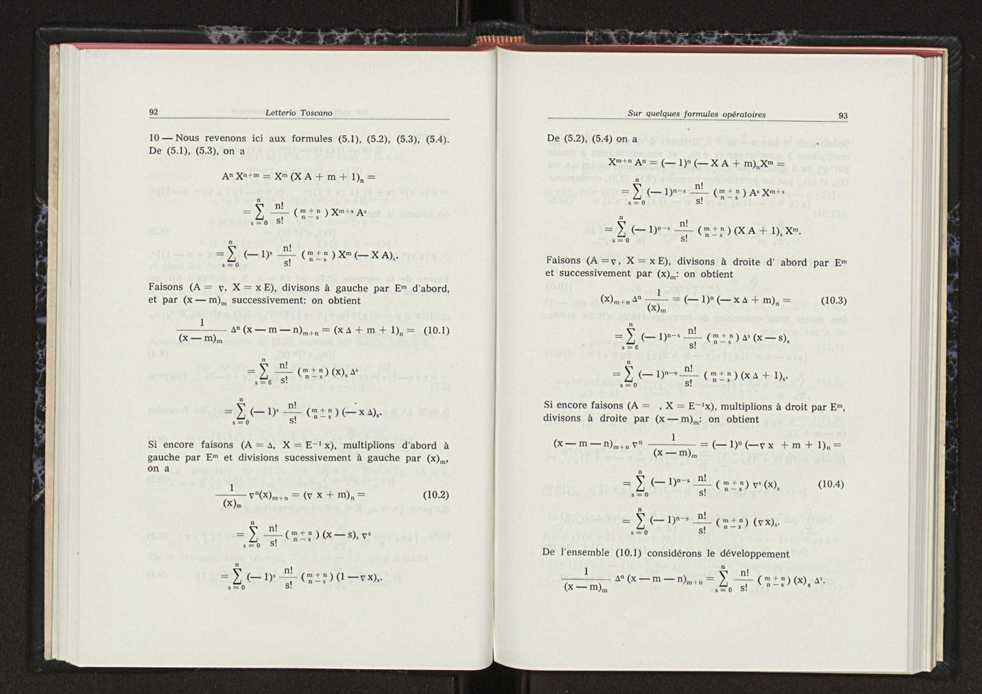 92 Letterio Toscano
10 — Nous revenons ici aux formules (5.1), (5.2), (5.3), (5.4).
De (5.1), (5.3), on a
Aⁿ Xⁿ⁺ᵐ = Xᵐ (X A + m + 1)ₙ =
= n ∑ s = 0 n! / s! ( m + n / n − s ) Xᵐ⁺ˢ Aˢ
= n ∑ s = 0 (— 1)ˢ n! / s! ( m + n / n − s ) Xᵐ (— X A)ₛ.
Faisons (A = ∇, X = x E), divisons à gauche par Eᵐ d'abord,
et par (x — m)ₘ successivement: on obtient
1 / (x — m)ₘ Δⁿ (x — m — n)ₘ₊ₙ = (x Δ + m + 1)ₙ = (10.1)
= n ∑ s = 0 n! / s! ( m + n / n − s ) (x)ₛ Δˢ
= n ∑ s = 0 (— 1)ˢ n! / s! ( m + n / n − s ) (— x Δ)ₛ.
Si encore faisons (A = Δ, X = E⁻¹ x), multiplions d'abord à
gauche par Eᵐ et divisions sucessivement à gauche par (x)ₘ,
on a
1 / (x)ₘ ∇ⁿ(x)ₘ₊ₙ = (∇ x + m)ₙ = (10.2)
= n ∑ s = 0 n! / s! ( m + n / n − s ) (x — s)ₛ ∇ˢ
= n ∑ s = 0 (— 1)ˢ n! / s! ( m + n / n − s ) (1 — ∇ x)ₛ.
Sur quelques formules opératoires 93
De (5.2), (5.4) on a
Xᵐ⁺ⁿ Aⁿ = (— 1)ⁿ (— X A + m)ₙ Xᵐ =
= n ∑ s = 0 (— 1)ⁿ⁻ˢ n! / s! ( m + n / n − s ) Aˢ Xᵐ⁺ˢ
= n ∑ s = 0 (— 1)ⁿ⁻ˢ n! / s! ( m + n / n − s ) (X A + 1)ₛ Xᵐ.
Faisons (A = ∇, X = x E), divisons à droite d' abord par Eᵐ
et successivement par (x)ₘ: on obtient
(x)ₘ₊ₙ Δⁿ 1 / (x)ₘ = (— 1)ⁿ (— x Δ + m)ₙ = (10.3)
= n ∑ s = 0 (— 1)ⁿ⁻ˢ n! / s! ( m + n / n − s ) Δˢ (x — s)ₛ
= n ∑ s = 0 (— 1)ⁿ⁻ˢ n! / s! ( m + n / n − s ) (x Δ + 1)ₛ.
Si encore faisons (A = , X = E⁻¹x), multiplions à droit par Eᵐ,
divisons à droite par (x — m)ₘ: on obtient
(x — m — n)ₘ₊ₙ ∇ⁿ 1 / (x — m)ₘ = (— 1)ⁿ (— ∇ x + m + 1)ₙ =
= n ∑ s = 0 (— 1)ⁿ⁻ˢ n! / s! ( m + n / n − s ) ∇ˢ (x)ₛ (10.4)
= n ∑ s = 0 (— 1)ⁿ⁻ˢ n! / s! ( m + n / n − s ) (∇ x)ₛ.
De l'ensemble (10.1) considérons le développement
1 / (x — m)ₘ Δⁿ (x — m — n)ₘ₊ₙ = n ∑ s = 0 n! / s! ( m + n / n − s ) (x)ₛ Δˢ.